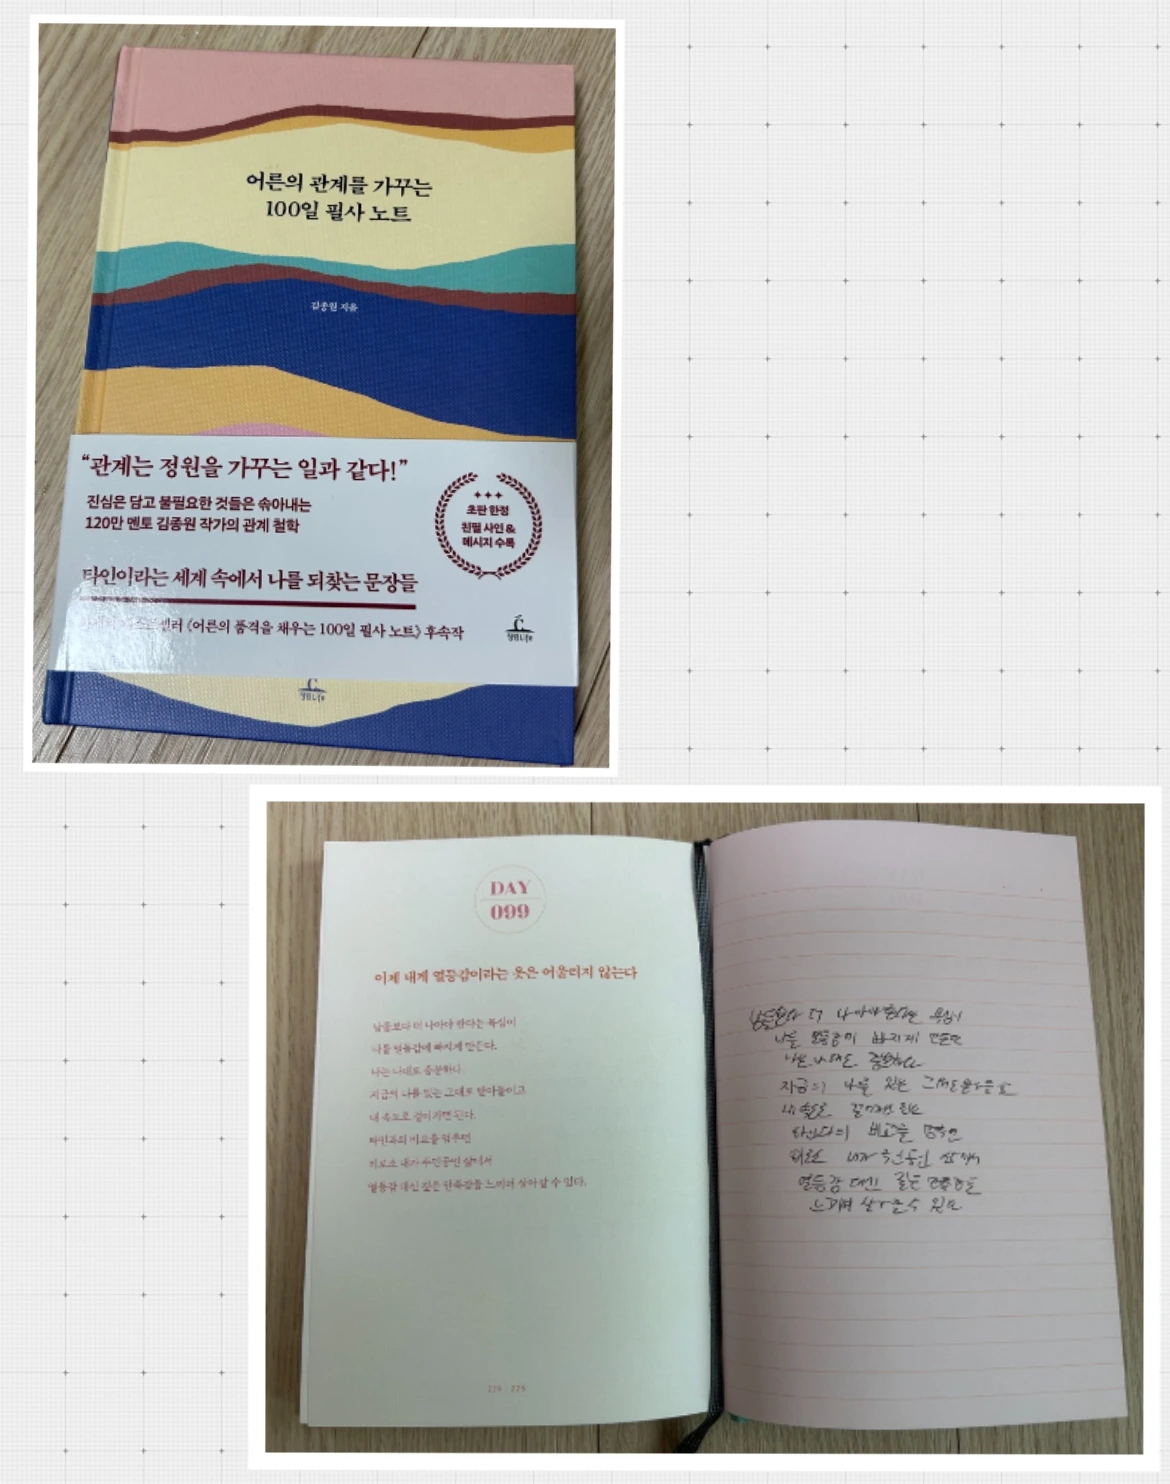 어른의 관계를 가꾸는
100일 필사 노트
김종원 지음
“관계는 정원을 가꾸는 일과 같다!”
진심은 담고 불필요한 것들은 솎아내는
120만 멘토 김종원 작가의 관계 철학
초판 한정
친필 사인 &
메시지 수록
타인이라는 세계 속에서 나를 되찾는 문장들
《어른의 품격을 채우는 100일 필사 노트》 후속작
청림Life
청림Life
DAY
099
이제 내게 열등감이라는 옷은 어울리지 않는다
남들보다 더 나아야 한다는 욕심이
나를 열등감에 빠지게 만든다.
나는 나대로 충분하니
지금의 나를 있는 그대로 받아들이고
내 속도로 걸어가면 된다.
타인과의 비교를 멈추면
비로소 내가 주인공인 삶에서
열등감 대신 깊은 만족감을 느끼며 살아갈 수 있다.
남들보다 더 나아야 한다는 욕심이
나를 열등감에 빠지게 만든다
나는 나대로 충분하니
지금의 나를 있는 그대로 받아들이고
내 속도로 걸어가면 된다
비교를 멈추면
비로소 내가 주인공인 삶에서
열등감 대신 깊은 만족감을
느끼며 살아갈 수 있다